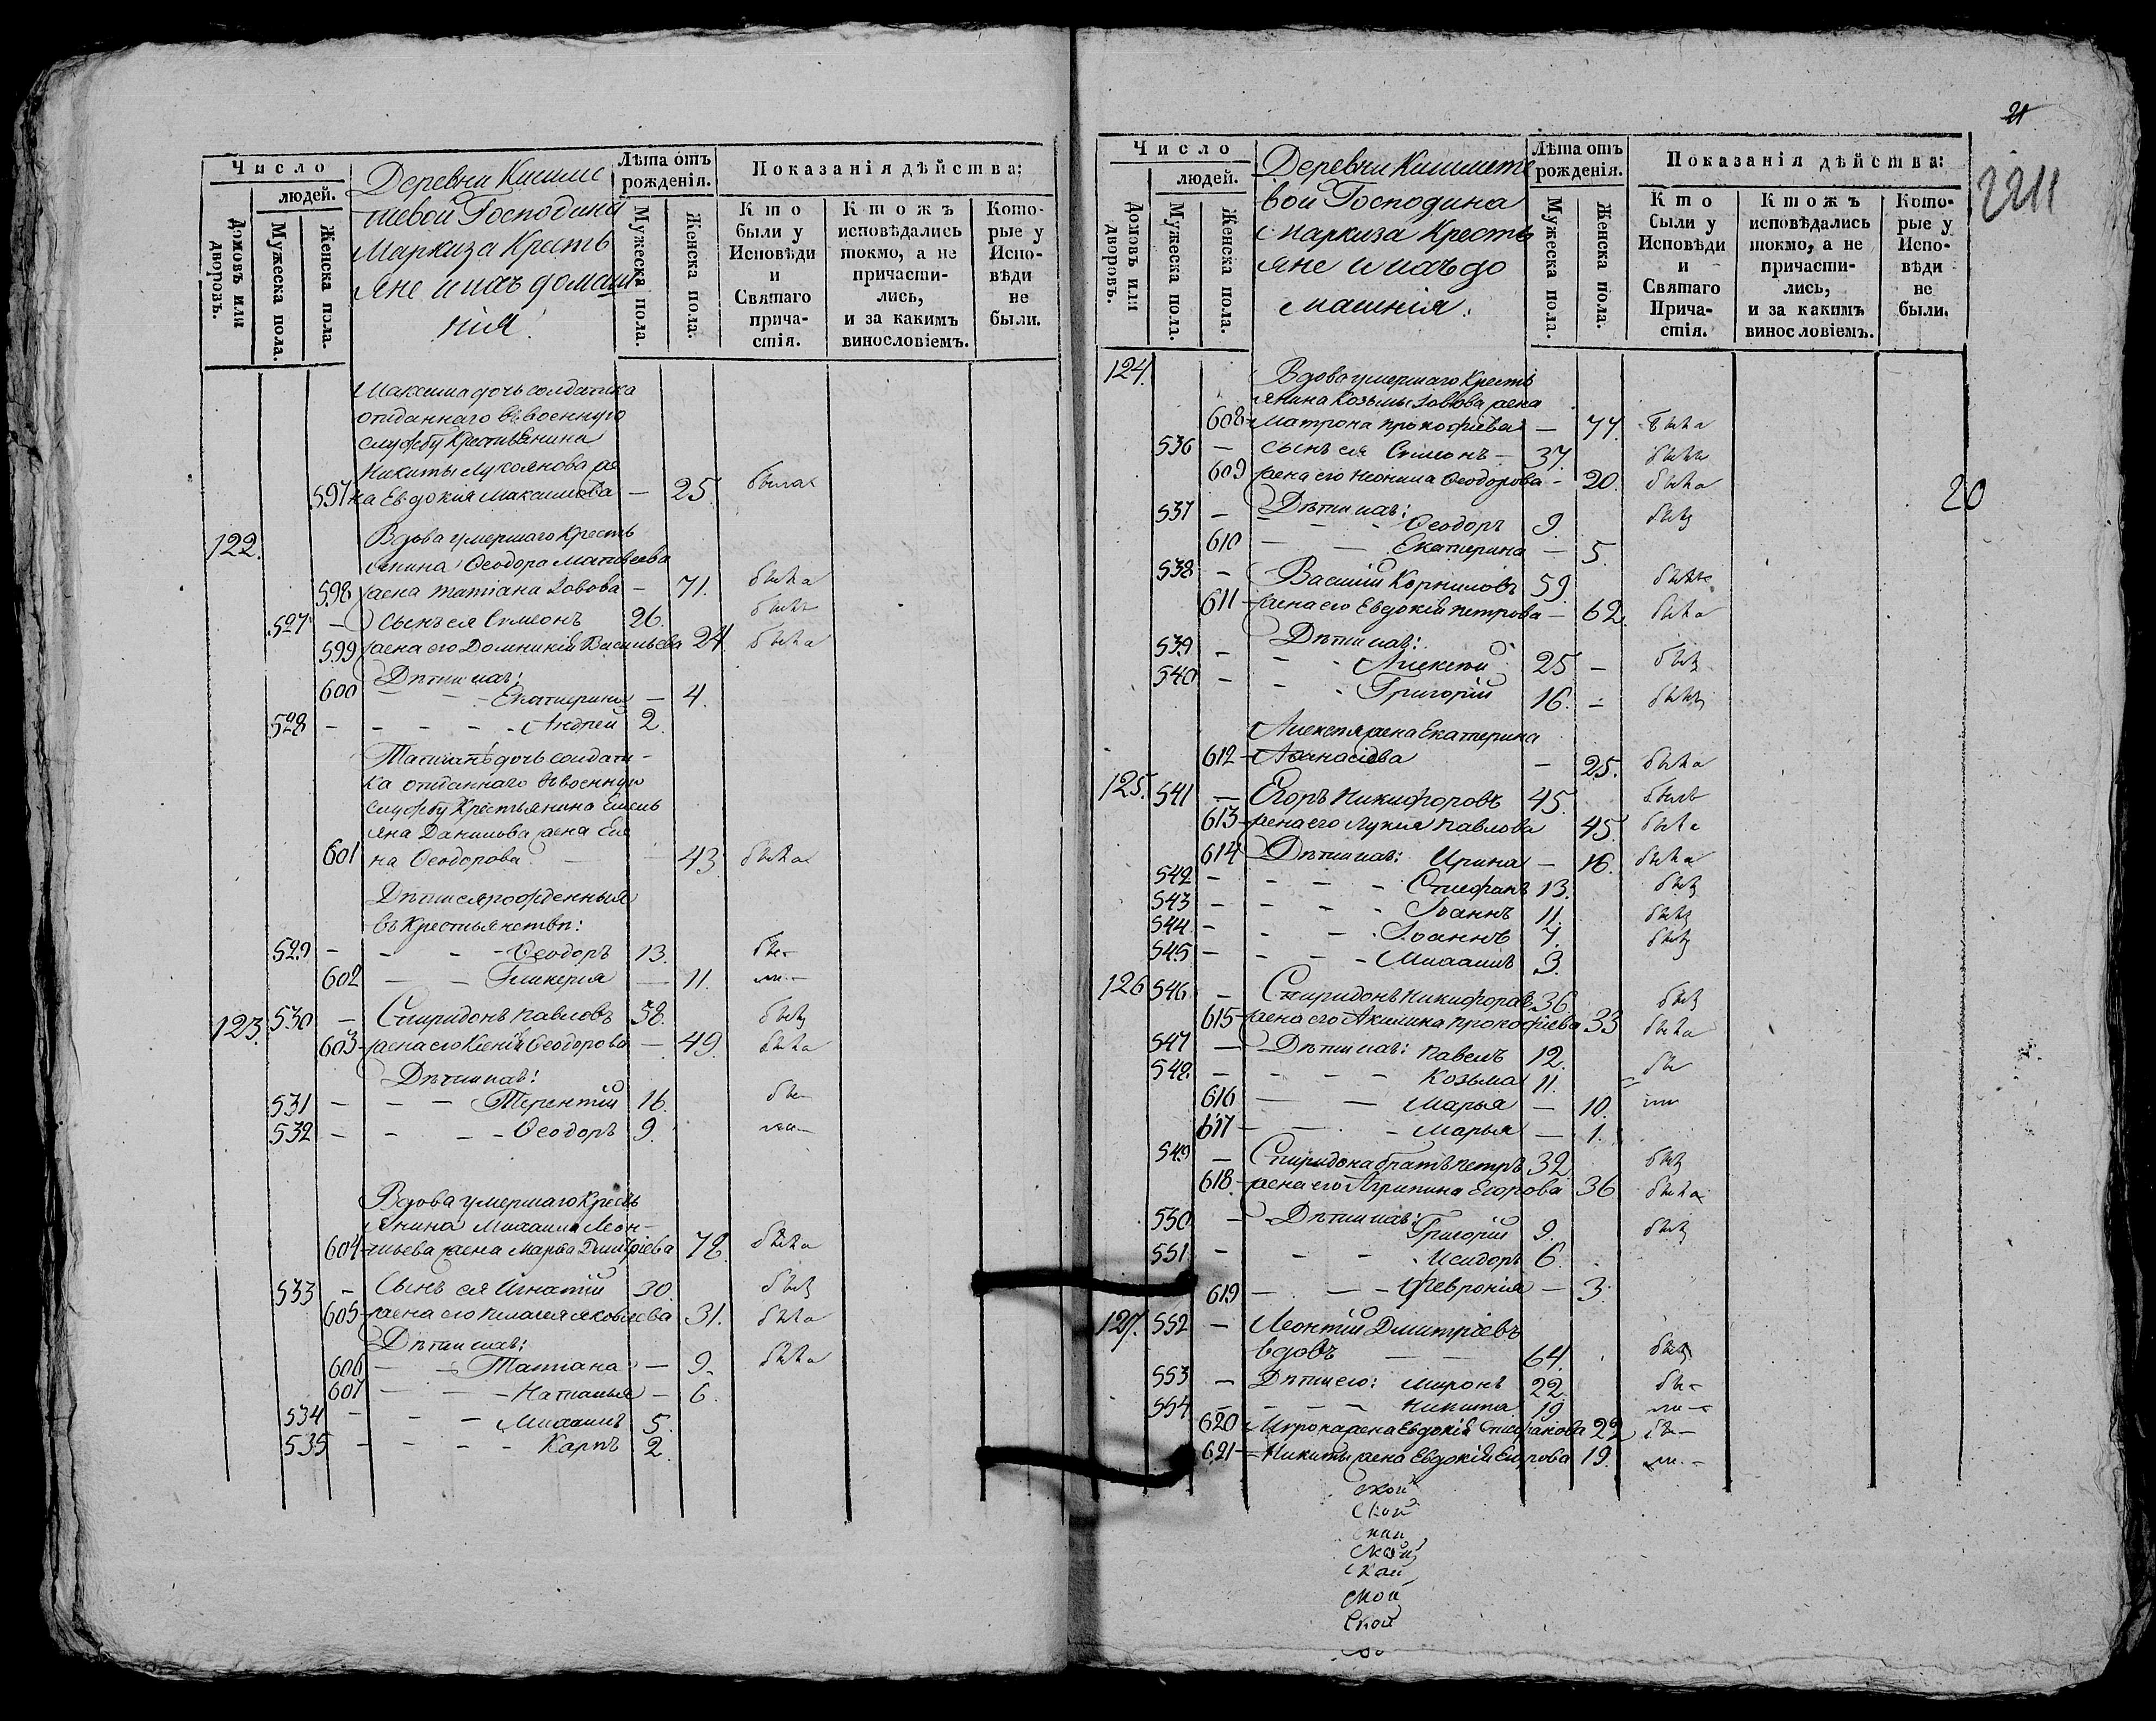 Число
людей.
Домовъ или дворовъ.
Мужеска пола.
Женска пола.
Деревни Кишме
тевой Господина
Маркиза Кресть
яне и ихъ домаш
нія
Лѣта отъ рожденія.
Мужеска пола.
Женска пола.
Показанія дѣйства:
Кто были у Исповѣди и Святаго прича- стія.
Ктожъ исповѣдались токмо, а не причасти- лись, и за какимъ винословіемъ.
Кото- рые у Испо- вѣди не были.
Максима дочь солдатка
отданнаго въ военную
службу Крестьянина
Никиты Лукоянова же
597 на Евдокія Максимова — 25. была
122. Вдова умершаго Кресть
янина Ѳеодора Матвѣева
598 жена Татіана — 71. была
527 — Сынъ ея Симеонъ 26. былъ
599 жена его Домникія Васильева 24 была
Дѣти ихъ:
600 — — Екатерина — 4.
528 — — — — Андрей 2.
Татіанѣ дочь солдат-
ка отданнаго въ военную
службу Крестьянина Емель
яна Данилова жена Еле
601 на Ѳеодорова — — 43 была
Дѣти ея рожденныя
въ Крестьянствѣ:
529 — — — Ѳеодоръ 13. бы-
602 — — Гликерія — 11. ли-
123. 530 — Спиридонъ Павловъ 58. былъ
603 жена его Ксенія Ѳеодорова — 49. была
Дѣти ихъ:
531 — — — Терентій 16. бы-
532 — — — Ѳеодоръ 9. ли-
Вдова умершаго Кресть
янина Михаила Леон-
604 тьева жена Марѳа Дмитріева 78. была
533 — Сынъ ея Игнатій 30. былъ
605 жена его Пелагея Яковлева 31. была
Дѣти ихъ:
606 — — Татіана — 9. была
607 — — — Наталья — 6.
534 — — — Михаилъ 5.
535 — — — — Карпъ 2.
21
2211
20
Число
людей.
Домовъ или дворовъ.
Мужеска пола.
Женска пола.
Деревни Кишмете
вой Господина
Маркиза Кресть
яне и ихъ до
машнія.
Лѣта отъ рожденія.
Мужеска пола.
Женска пола.
Показанія дѣйства:
Кто были у Исповѣди и Святаго Прича- стія.
Ктожъ исповѣдались токмо, а не причасти- лись, и за какимъ винословіемъ.
Кото- рые у Испо- вѣди не были.
124. Вдова умершаго Кресть
янина Козьмы жена
608 Матрона Прокофіева — 77. была
536 — Сынъ ея Симеонъ — 37. былъ
609 жена его Неонила Ѳеодорова — 20. была
Дѣти ихъ:
537 — — — Ѳеодоръ 9. былъ
610 — — Екатерина — 5.
538 — Василій Корниловъ 59. былъ
611 жена его Евдокія Петрова — 62. была
Дѣти ихъ:
539 — — — Алексѣй 25 — былъ
540 — — — Григорій 16. — былъ
Алексѣя жена Екатерина
612 Аѳанасіева — 25. была
125. 541 — Егоръ Никифоровъ 45. былъ
613 жена его Лукія Павлова 45. была
614 Дѣти ихъ: Ирина — 16. была
542 — — — — Стефанъ 13. былъ
543 — — — — Іоаннъ 11. былъ
544 — — — Іоаннъ 7. былъ
545 — — — — Михаилъ 3.
126 546 — Спиридонъ Никифоровъ 36. былъ
615 жена его Акилина Прокофіева 33 была
547 — Дѣти ихъ: Павелъ 12. бы
548 — — — — Козьма 11.
616 — — Марья — 10. ли
617 — — — Марья — 1.
549 — Спиридона братъ Петръ 32 былъ
618 жена его Агрипина Егорова 36 была
550 — Дѣти ихъ: Григорій 9. былъ
551 — — — Исидоръ 6.
619 — — — Февронія — 3.
127. 552 — Леонтій Дмитріевъ
вдовъ — — 64. былъ
553 — Дѣти его: Миронъ 22. бы-
554 — — — — Никита 19 ли-
620 Мирона жена Евдокія Стефанова 22 бы-
621 Никиты жена Евдокія 19. ли-
ской
ской
ской
ской
ской